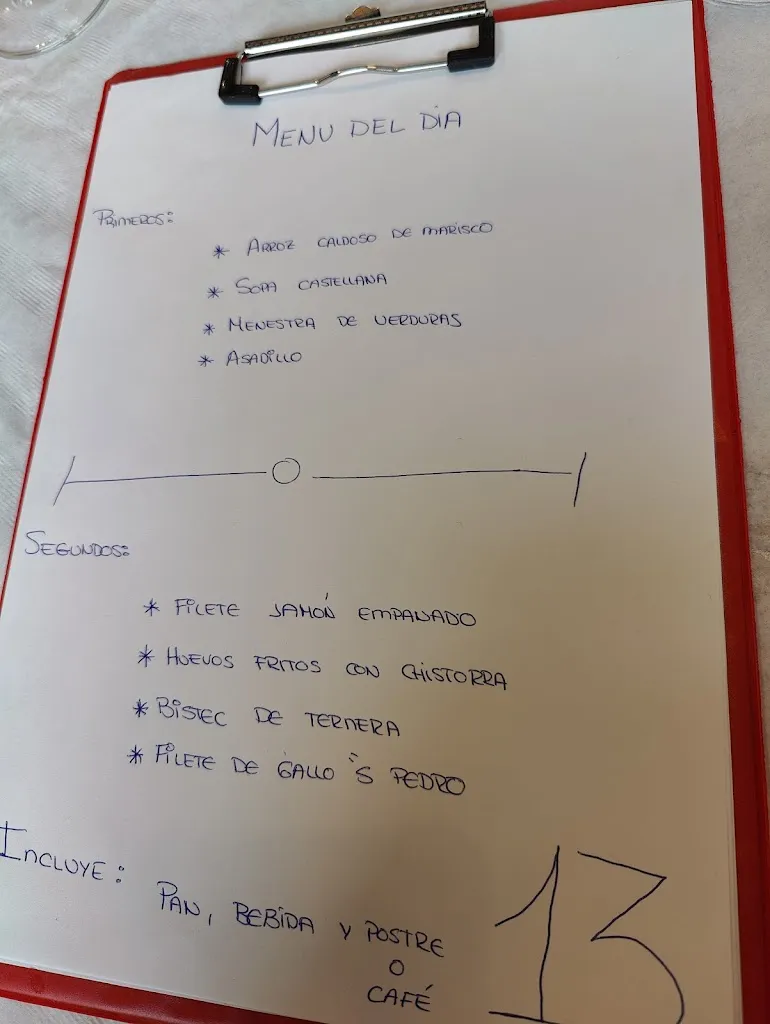 MENU DEL DIA
PRIMEROS:
* ARROZ CALDOSO DE MARISCO
* SOPA CASTELLANA
* MENESTRA DE VERDURAS
* ASADILLO
SEGUNDOS:
* FILETE JAMÓN EMPANADO
* HUEVOS FRITOS CON CHISTORRA
* BISTEC DE TERNERA
* FILETE DE GALLO "S PEDRO
INCLUYE: PAN, BEBIDA Y POSTRE
O
CAFÉ
13